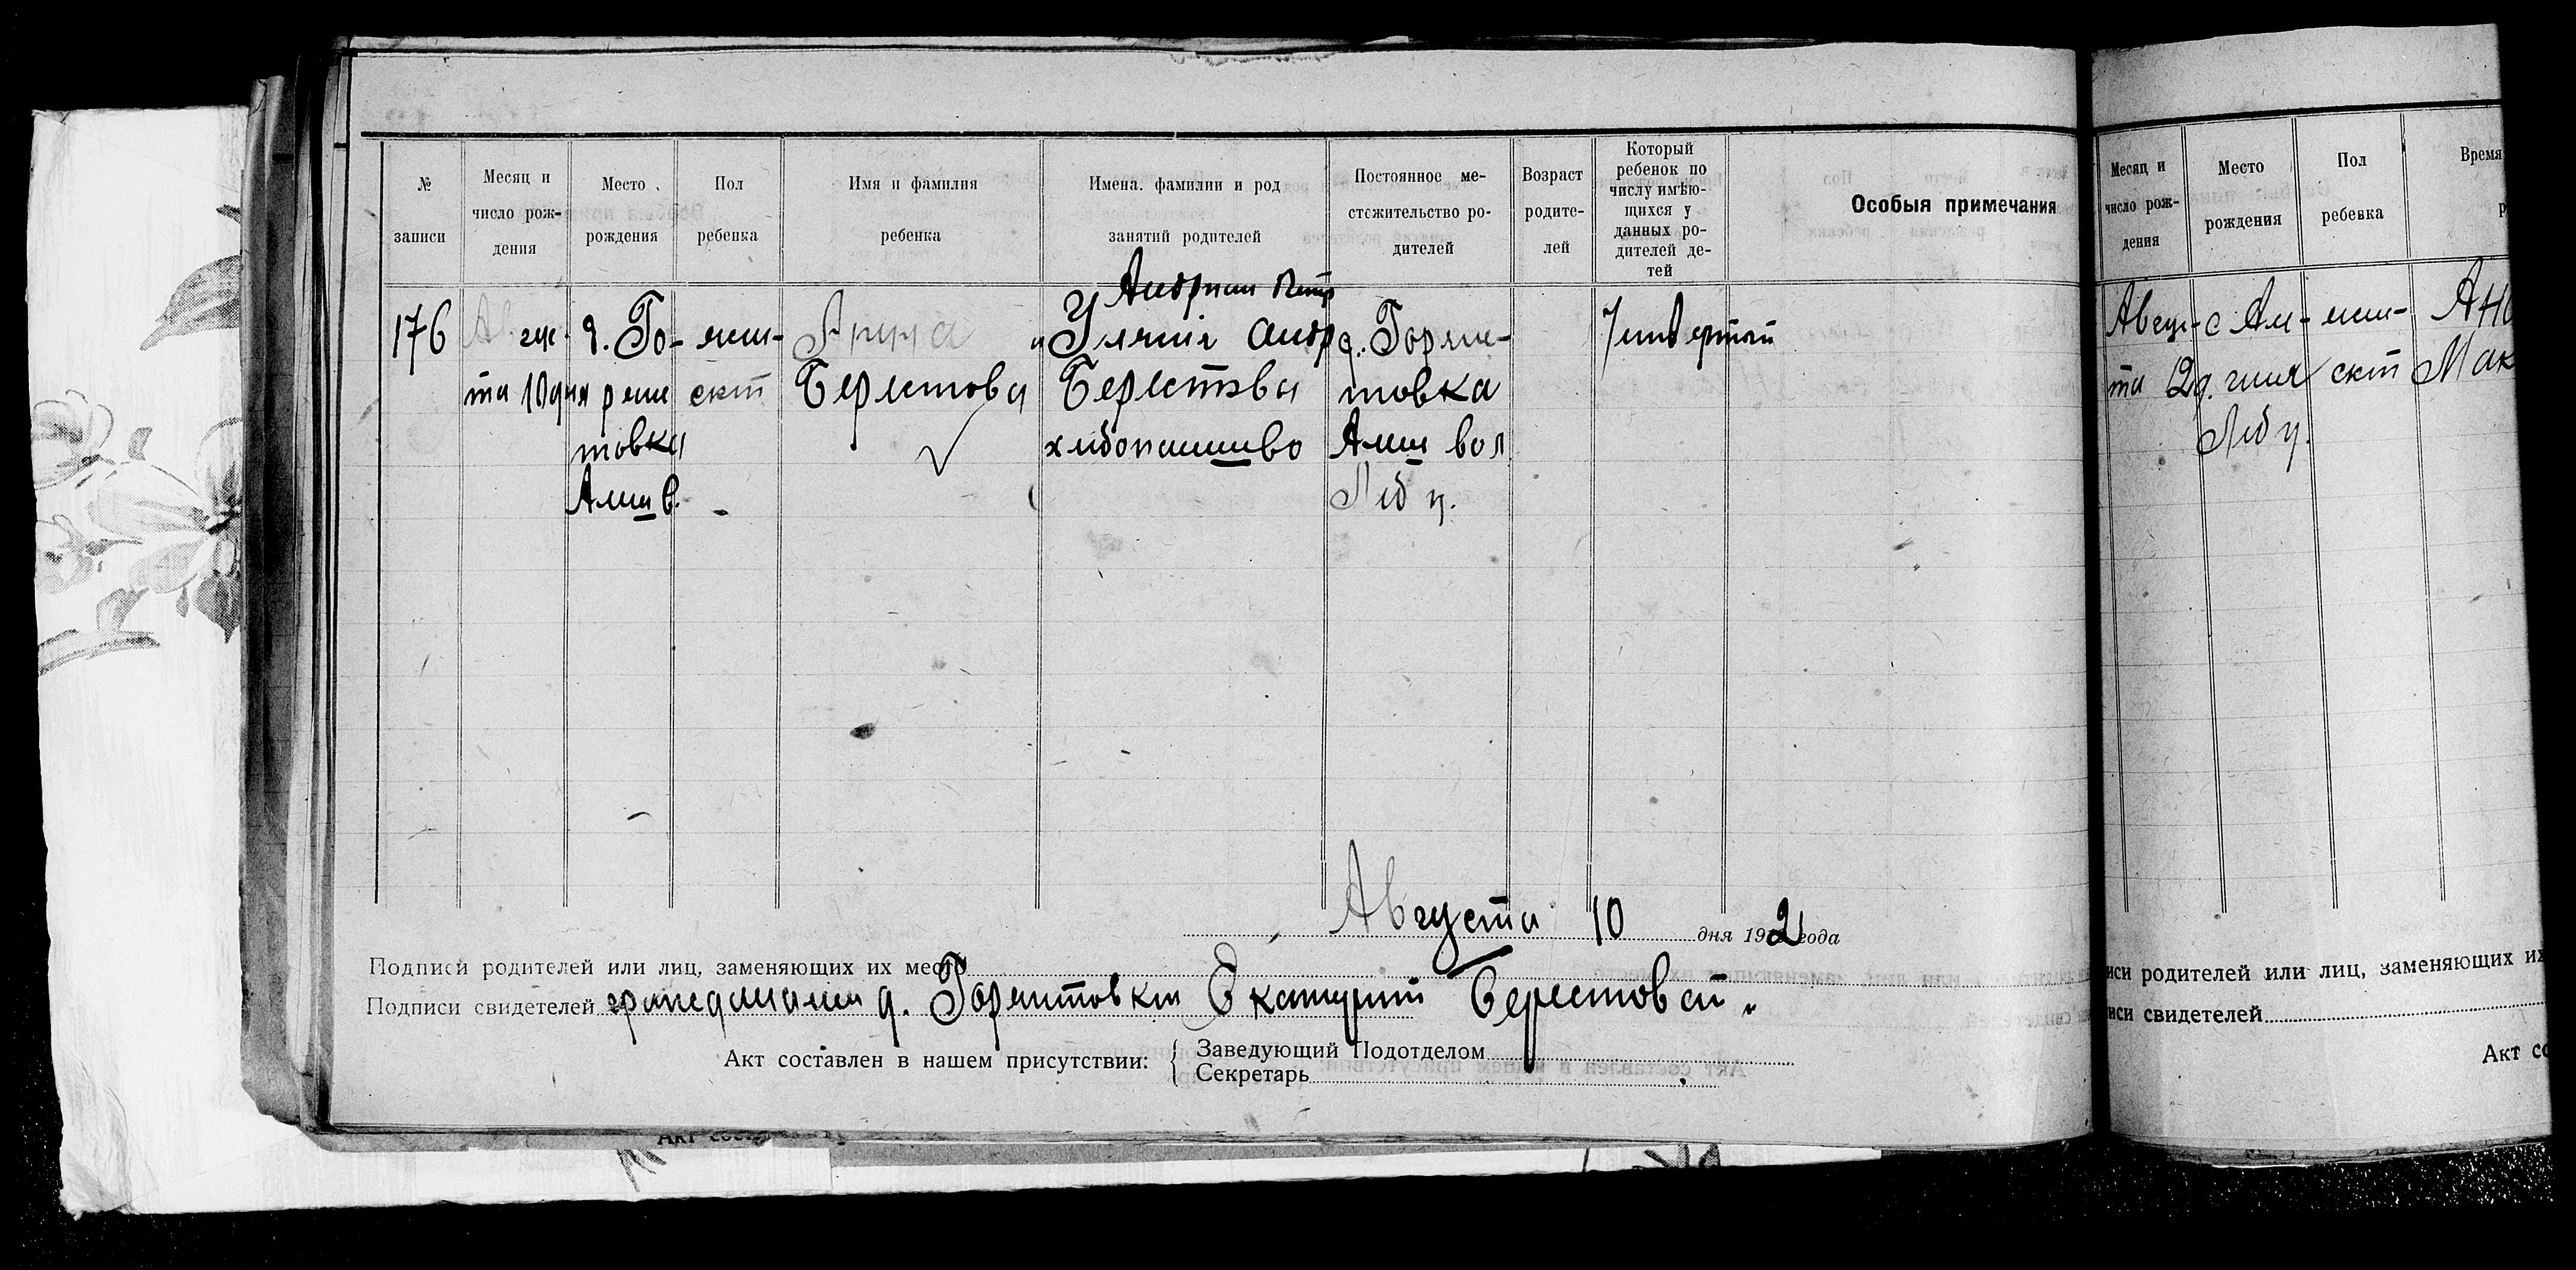 № записи
Месяц и число рождения
Место рождения
Пол ребенка
Имя и фамилия ребенка
Имена. фамилии и род занятий родителей
Постоянное местожительство родителей
Возраст родителей
Который ребенок по числу имѣющихся у данных родителей детей
Особыя примечания
176
Августа 10 дня
д. Го-
ряш
товка
Амш в.
женс-
ский
Берестова
Андриан Петр
и Улянія Андр
Берестовы
хлебопашиво
д. Горяш-
товка
Амш вол
Леб у.
Августа 10 дня 192 года
Подписи родителей или лиц, заменяющих их место
Подписи свидетелей гражданами д. Горяштовки Екатерий Берестовой.
Акт составлен в нашем присутствии:
Заведующий Подотделом
Секретарь
Месяц и число рождения
Место рождения
Пол ребенка
Время
Авгус-
та 2д.
с Ам-
Леб у.
иси родителей или лиц, заменяющих их
иси свидетелей
Акт со